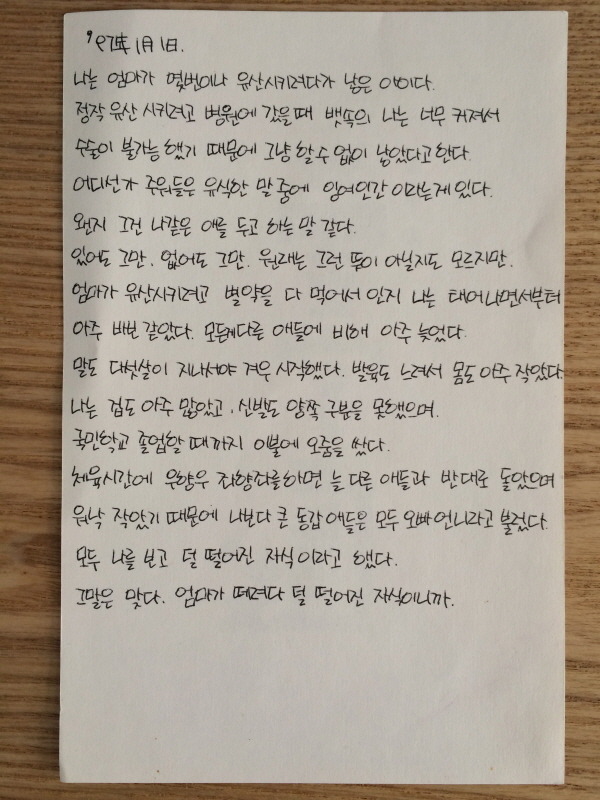 '97年 1月 1日.
나는 엄마가 몇번이나 유산시키려다가 낳은 아이다.
정작 유산 시키려고 병원에 갔을때 뱃속의 나는 너무 커져서
수술이 불가능 했기 때문에 그냥 할수 없이 낳았다고 한다.
어디선가 주워들은 유식한 말 중에 잉여인간 이라는게 있다.
왠지 그건 나같은 애를 두고 하는 말 같다.
있어도 그만. 없어도 그만. 원래는 그런 뜻이 아닐지도 모르지만.
엄마가 유산시키려고 별약을 다 먹어서 인지 나는 태어나면서부터
아주 바보 같았다. 모든게 다른 애들에 비해 아주 늦었다.
말도 다섯살이 지나서야 겨우 시작했다. 발육도 느려서 몸도 아주 작았다.
나는 겁도 아주 많았고, 신발도 양쪽 구분을 못했으며.
국민학교 졸업할 때까지 이불에 오줌을 쌌다.
체육시간에 우향우 좌향좌를하면 늘 다른 애들과 반대로 돌았으며
워낙 작았기 때문에 나보다 큰 동갑 애들은 모두 오빠 언니라고 불렀다.
모두 나를 보고 덜 떨어진 자식이라고 했다.
그말은 맞다. 엄마가 떼려다 덜 떨어진 자식이니까.